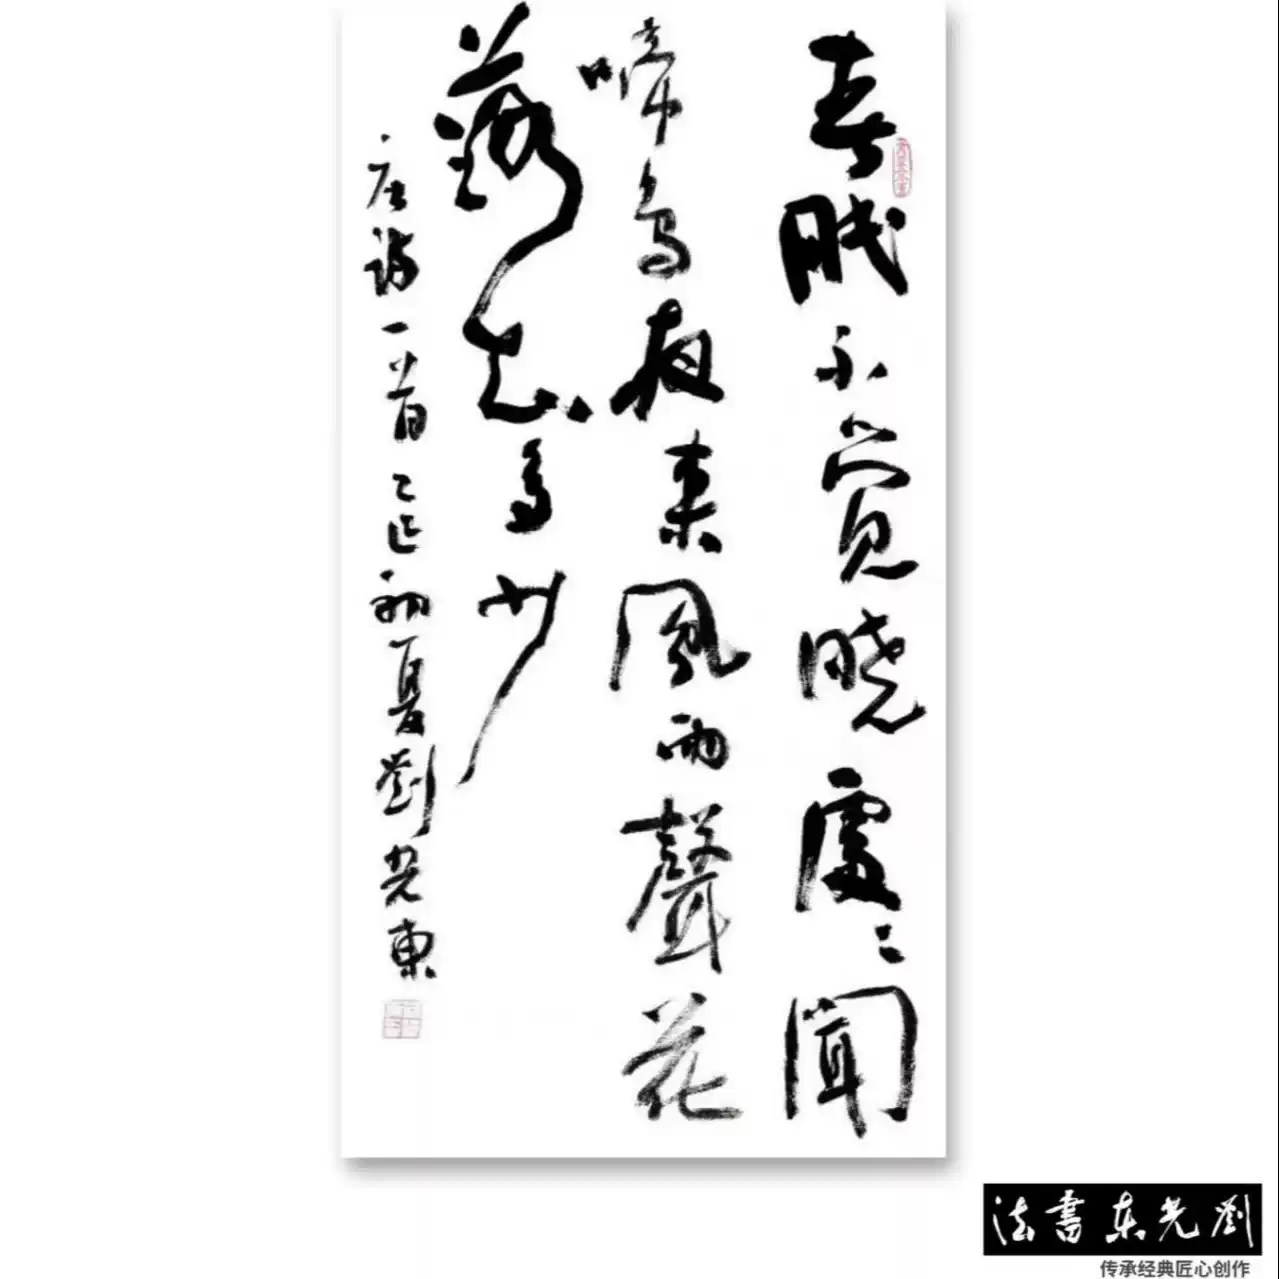 春眠不觉晓處々聞
啼鸟夜来風雨聲花
落知多少
唐诗一首乙巳初夏劉光東
劉光东書法
传承经典匠心创作